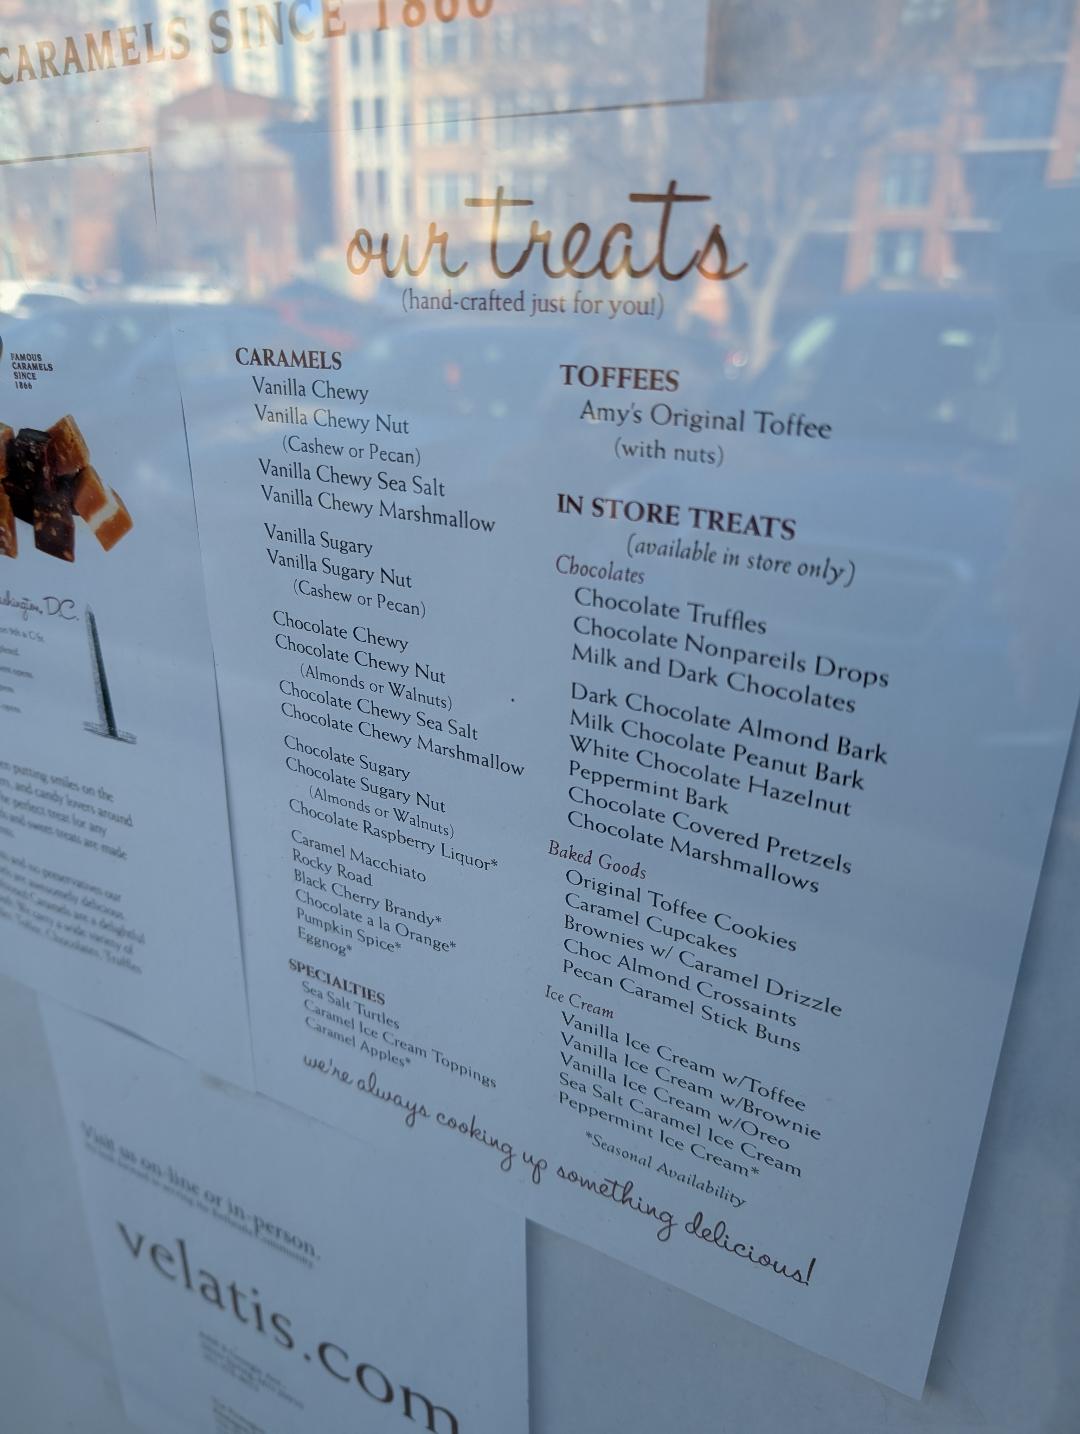 CARAMELS SINCE 1866
FAMOUS
CARAMELS
SINCE
1866
our treats
(hand-crafted just for you!)
CARAMELS
Vanilla Chewy
Vanilla Chewy Nut
(Cashew or Pecan)
Vanilla Chewy Sea Salt
Vanilla Chewy Marshmallow
Vanilla Sugary
Vanilla Sugary Nut
(Cashew or Pecan)
Chocolate Chewy
Chocolate Chewy Nut
(Almonds or Walnuts)
Chocolate Chewy Sea Salt
Chocolate Chewy Marshmallow
Chocolate Sugary
Chocolate Sugary Nut
(Almonds or Walnuts)
Chocolate Raspberry Liquor*
Caramel Macchiato
Rocky Road
Black Cherry Brandy*
Chocolate a la Orange*
Pumpkin Spice*
Eggnog*
SPECIALTIES
Sea Salt Turtles
Caramel Ice Cream Toppings
Caramel Apples*
TOFFEES
Amy's Original Toffee
(with nuts)
IN STORE TREATS
(available in store only)
Chocolates
Chocolate Truffles
Chocolate Nonpareils Drops
Milk and Dark Chocolates
Dark Chocolate Almond Bark
Milk Chocolate Peanut Bark
White Chocolate Hazelnut
Peppermint Bark
Chocolate Covered Pretzels
Chocolate Marshmallows
Baked Goods
Original Toffee Cookies
Caramel Cupcakes
Brownies w/ Caramel Drizzle
Choc Almond Crossaints
Pecan Caramel Stick Buns
Ice Cream
Vanilla Ice Cream w/Toffee
Vanilla Ice Cream w/Brownie
Vanilla Ice Cream w/Oreo
Sea Salt Caramel Ice Cream
Peppermint Ice Cream*
*Seasonal Availability
we're always cooking up something delicious!
D.C.
putting smiles on the
and candy lovers around
perfect treat for any
and sweet treats are made
and no preservatives our
are awesomely delicious.
Caramels are a delightful
We carry a wide variety of
Toffee, Chocolates, Truffles
Visit us on-line or in-person.
velatis.com